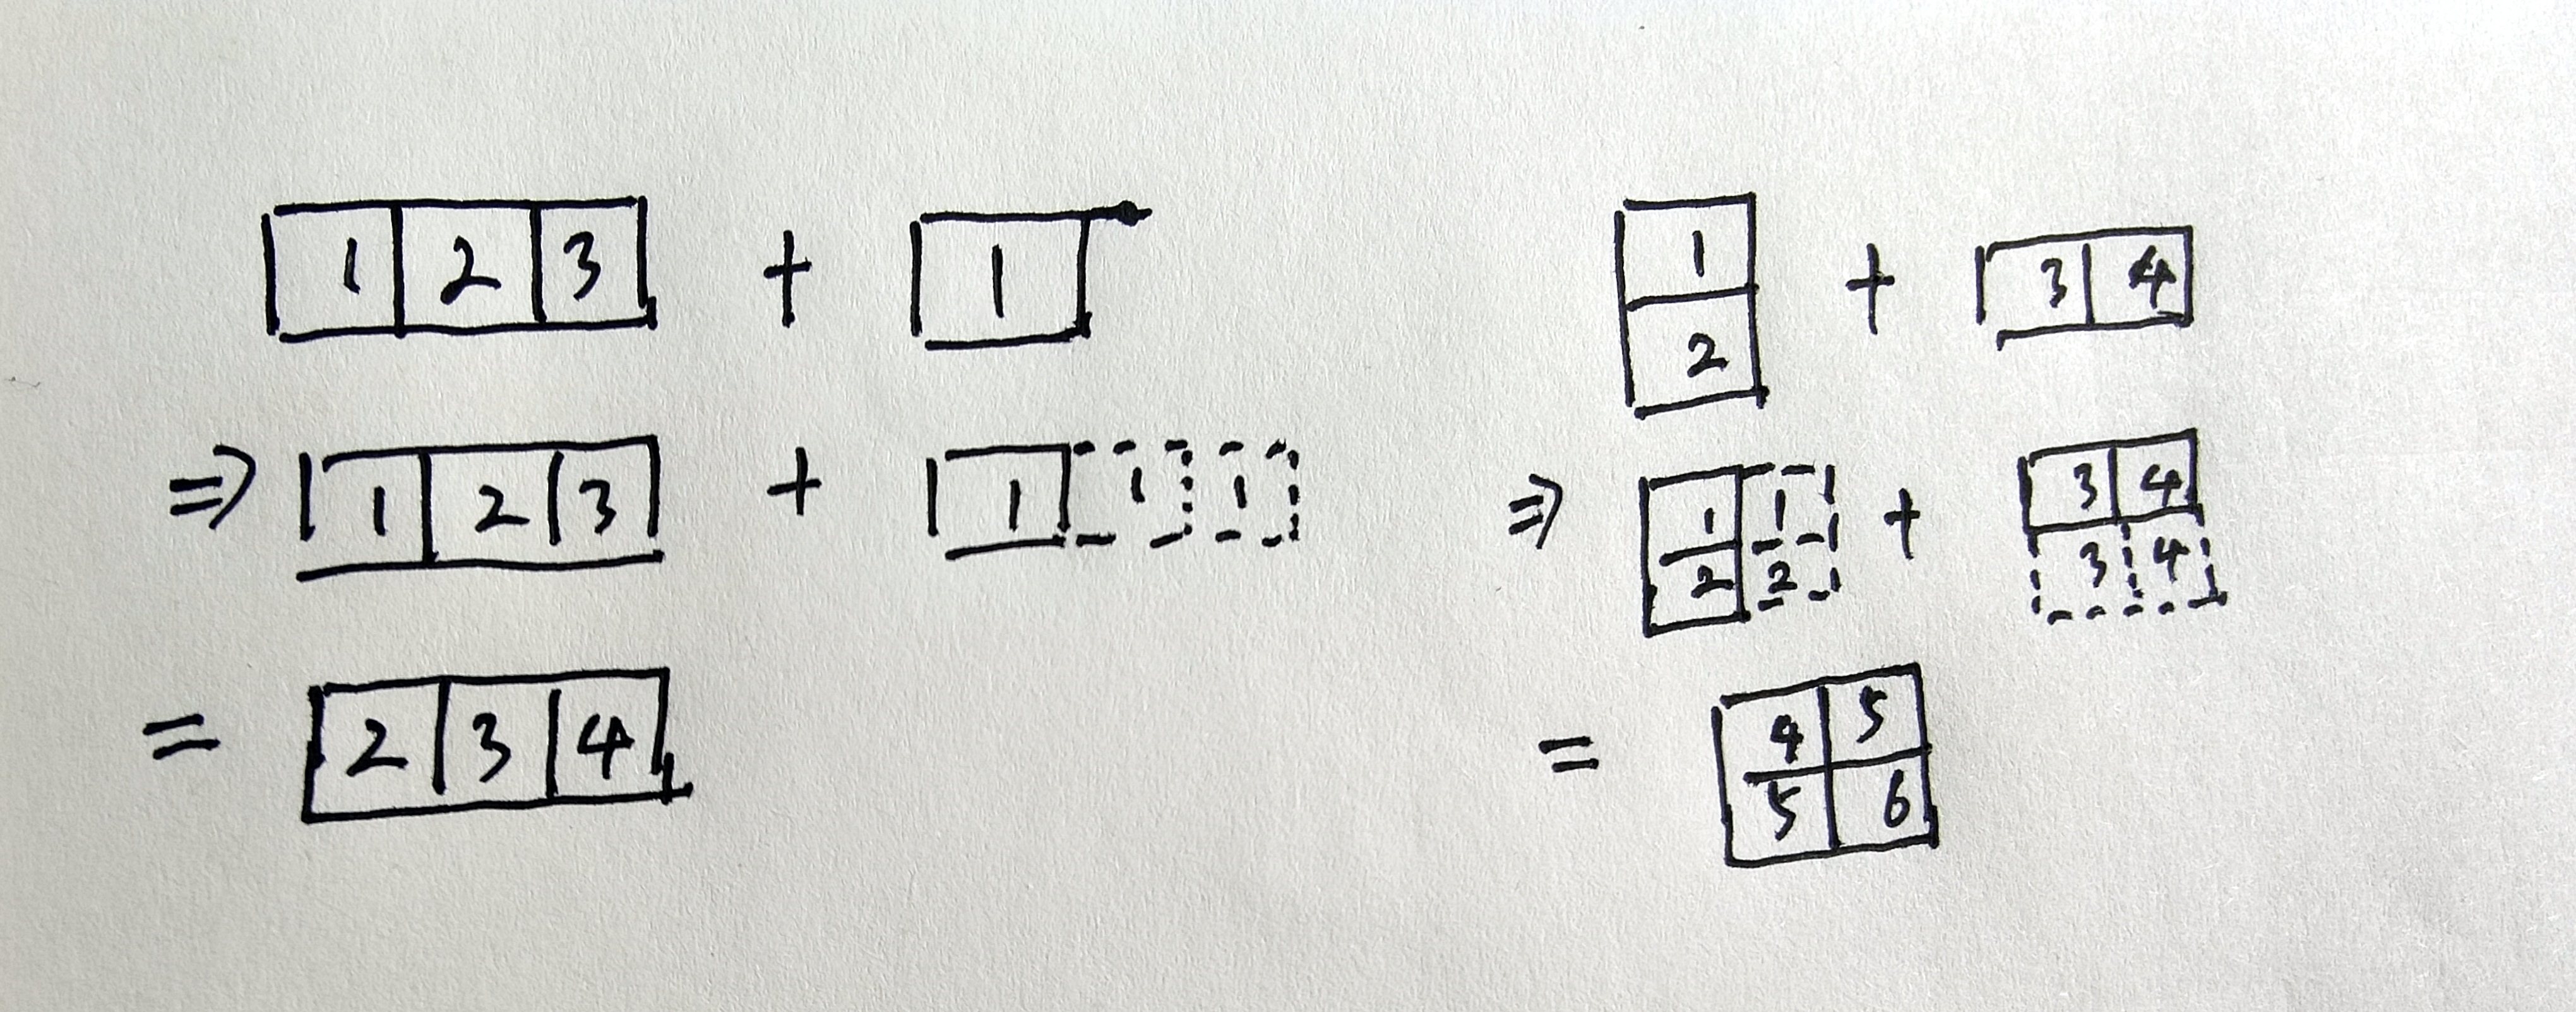 1 2 3 + 1
⇒ 1 2 3 + 1 1 1
= 2 3 4
1
2 + 3 4
⇒ 1 1 + 3 4
2 2 3 4
= 4 5
5 6